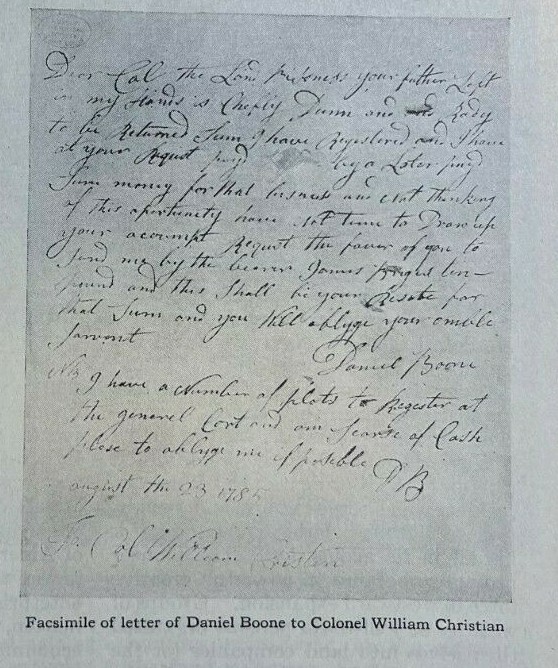 Dear Col the Land bisoness your father Left
in my Hands is Chefly Dunn and Rady
to be Returned Sum I have Regestered and I have
at your Requst payd by a Later payd
Sum money for that bisness and Not thinking
of this opertunity have not time to Draw up
your acoumpt Requst the favor of you to
send me by the bearer James ten
pound and this Shall be your Resete for
that Sum and you Will oblyge your omble
Sarvent
Daniel Boone
NB I have a Number of plots to Regester at
the general Cort and am scarse of Cash
plese to oblyge me if poseble DB
august the 23 1785
To Col William Cristen
Facsimile of letter of Daniel Boone to Colonel William Christian